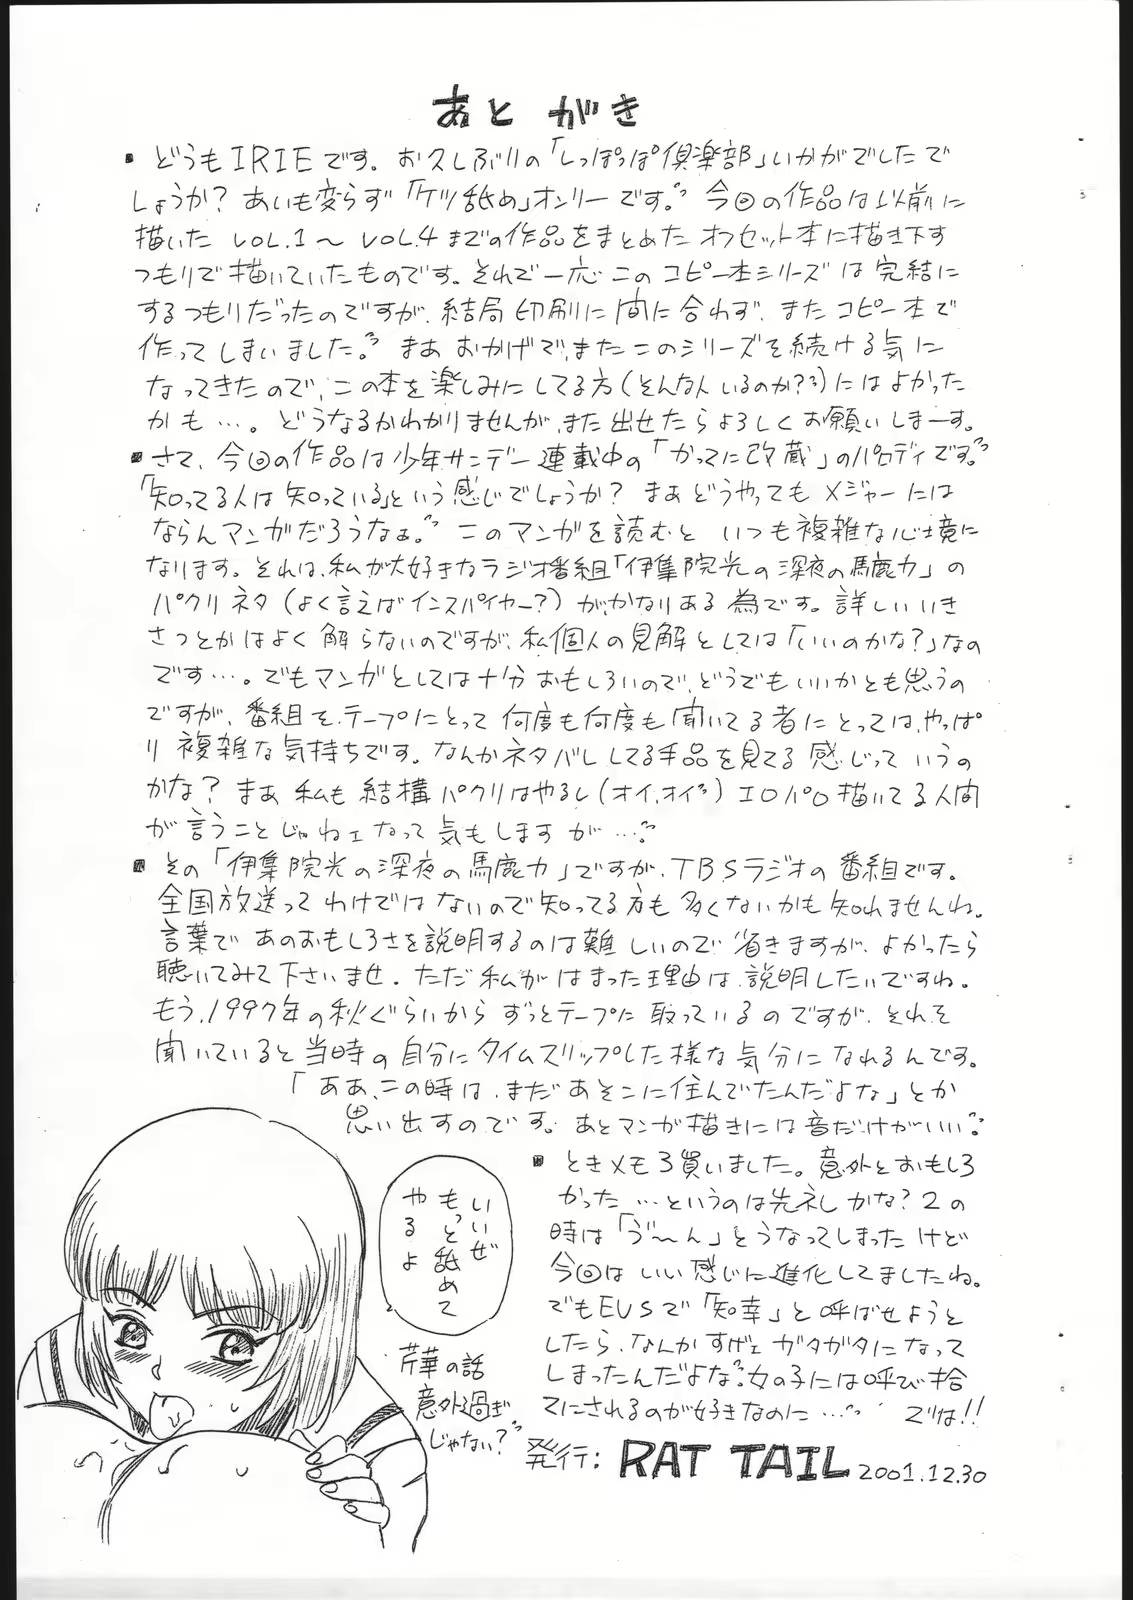 あとがき
▪どうもIRIEです。お久しぶりの「しっぽっぽ倶楽部」いかがでしたで
しょうか?あいも変らず「ケツ舐め」オンリーです。今回の作品は以前に
描いたVOL.1～VOL.4までの作品をまとめたオフセット本に描き下す
つもりで描いていたものです。それで一応このコピー本シリーズは完結に
するつもりだったのですが、結局印刷に間に合わず、またコピー本で
作ってしまいました。まあおかげで、またこのシリーズを続ける気に
なってきたので、この本を楽しみにしてる方(そんな人いるのか?)にはよかった
かも…。どうなるかわかりませんが、また出せたらよろしくお願いしまーす。
▪さて、今回の作品は少年サンデー連載中の「かってに改蔵」のパロディです。
「知ってる人は知っている」という感じでしょうか?まぁどうやってもメジャーには
ならんマンガだろうなぁ。このマンガを読むといつも複雑な心境に
なります。それは、私が大好きなラジオ番組「伊集院光の深夜の馬鹿力」の
パクリネタ(よく言えばインスパイヤー?)が、かなりある為です。詳しいいき
さつとかはよく解らないのですが、私個人の見解としては「いいのかな?」なの
です…。でもマンガとしては十分おもしろいので、どうでもいいかとも思うの
ですが、番組を、テープにとって何度も何度も聞いてる者にとっては、やっぱ
り複雑な気持ちです。なんかネタバレしてる手品を見てる感じっていうの
かな?まぁ私も結構パクリはやるし(オイ、オイ)エロパロ描いてる人間
が言うことじゃねェなって気もしますが…
▪その「伊集院光の深夜の馬鹿力」ですが、TBSラジオの番組です。
全国放送ってわけではないので知ってる方も多くないかも知れませんね。
言葉であのおもしろさを説明するのは難しいので省きますが、よかったら
聴いてみて下さいませ。ただ私がはまった理由は、説明したいですね。
もう、1997年の秋ぐらいからずっとテープに取っているのですが、それを
聞いていると当時の自分にタイムスリップした様な気分になれるんです。
「ああ、この時は、まだあそこに住んでたんだよな」とか
思い出すのです。あとマンガ描きには音だけがいい。
▪ときメモ3買いました。意外とおもしろ
かった…というのは失礼かな?2の
時は「う゛～ん」とうなってしまったけど
今回はいい感じに進化してましたね。
でもEVSで「知幸」と呼ばせようと
したら、なんかすげェガタガタになって
しまったんだよな。女の子には呼び捨
てにされるのが好きなのに…では!!
いいぜ
もっと舐めて
やるよ
芹華の話
意外過ぎ
じゃない?
発行:RAT TAIL 2001.12.30